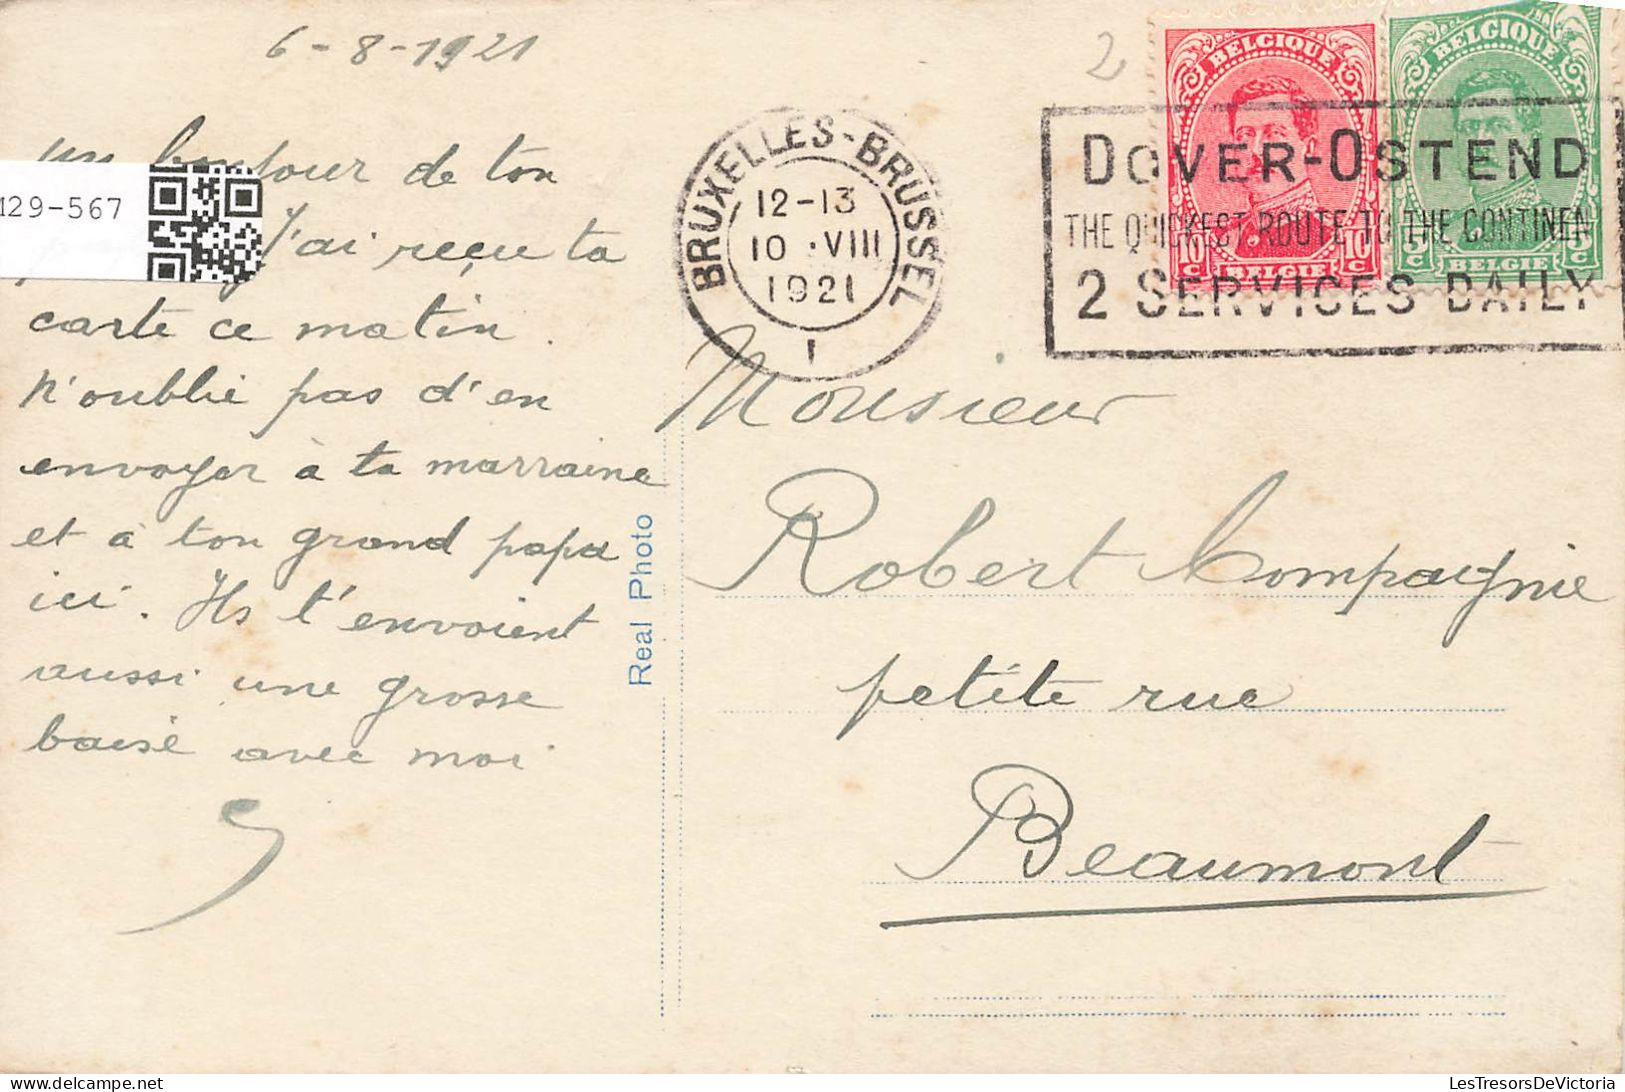 6-8-1921
un bonjour de ton
J'ai reçu ta
carte ce matin.
N'oublie pas d'en
envoyer à ta marraine
et à ton grand papa
ici. Ils t'envoient
aussi une grosse
baise avec moi
129-567
Real Photo
2
BRUXELLES-BRUSSEL
12-13
10 ·VIII
1921
1
BELGIQUE
10 C 10 C
BELGIE
BELGIQUE
5 C 5 C
BELGIE
DOVER-OSTEND
THE QUICKEST ROUTE TO THE CONTINEN
2 SERVICES DAILY
Monsieur
Robert Compagnie
petite rue
Beaumont
LesTresorsDeVictoria